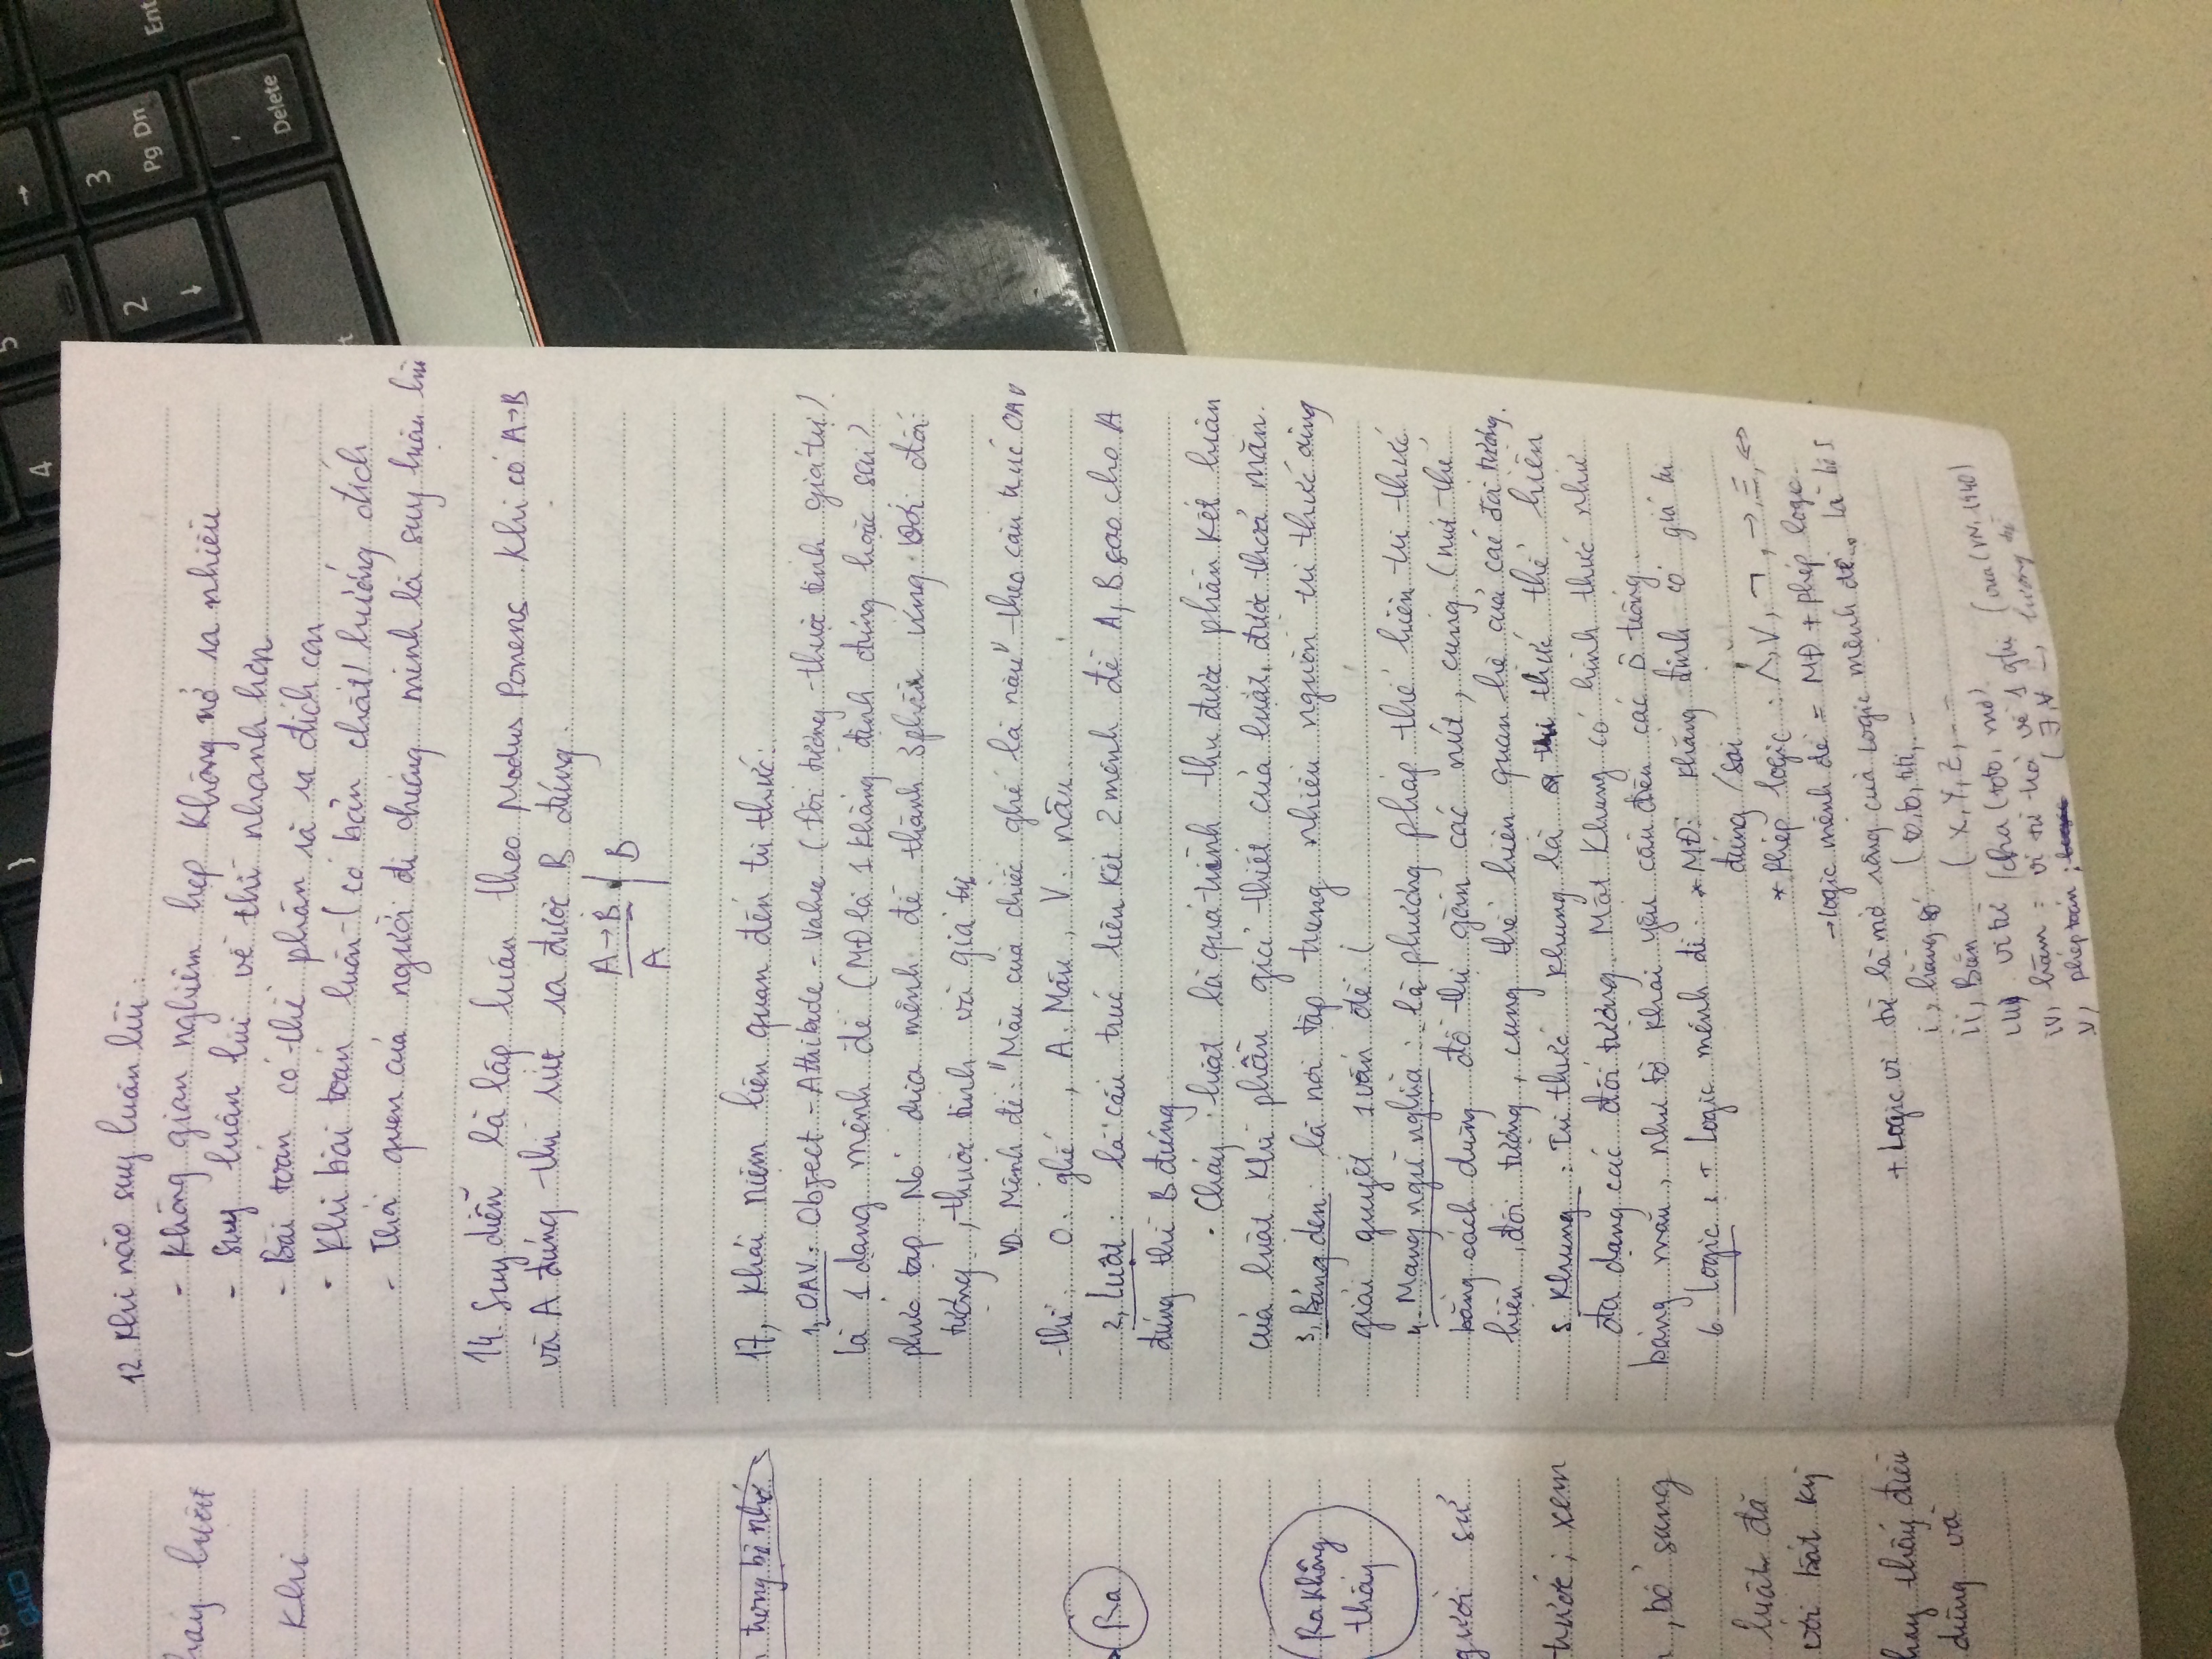 12. Khi nào suy luận lùi:
- Không gian nghiệm hẹp không nở ra nhiều
- Suy luận lùi về thì nhanh hơn
- Bài toán có thể phân rã ra đích con
- Khi bài toán luôn (có bản chất) hướng đích
- Thói quen của người đi chứng minh là suy luận lùi
14. Suy diễn là lập luận theo Modus Ponens. Khi có A→B
và A đúng thì rút ra được B đúng.
A→B
B
A
17, Khái niệm liên quan đến tri thức:
1, OAV: Object - Attribute - Value (Đối tượng - thuộc tính giá trị)
là 1 dạng mệnh đề (MĐ là 1 khẳng định đúng hoặc sai)
phức tạp. Nó chia mệnh đề thành 3 phần ứng với đối
tượng, thuộc tính và giá trị
VD. Mệnh đề: "Màu của chiếc ghế là nâu" theo cấu trúc OAV
thì: O: ghế, A: Màu, V: nâu.
2, Luật: là cấu trúc liên kết 2 mệnh đề A, B sao cho A
đúng thì B đúng
- Cháy luật là quá trình thu được phần kết luận
của luật khi phần giả thiết của luật được thoả mãn.
3, Bảng đen: là nơi tập trung nhiều nguồn tri thức dùng
giải quyết 1 vấn đề. (
4. Mạng ngữ nghĩa: là phương pháp thể hiện tri thức
bằng cách dùng đồ thị gồm các nút, cung. (nút thể
hiện đối tượng, cung thể hiện quan hệ của các đối tượng.
5. Khung: Tri thức khung là tri thức thể hiện
đa dạng các đối tượng. Một khung có hình thức như
bảng mẫu, như tờ khai yêu cầu điền các ô trống.
6. Logic: + Logic mệnh đề: * MĐ: khẳng định có giá trị
đúng / sai
* Phép logic: ∧, ∨, ¬, →, ≡, ↔
→ logic mệnh đề = MĐ + phép logic.
+ Logic vị từ là mở rộng của Logic mệnh đề. Là bộ 5
i, hằng số (
ii, Biến (X, Y, Z, ...
iii) vị từ (cha (toto, mo)
iv, hàm = vị từ trả về 1 ghi (vua (VN, 1940)
v, phép toán: (∃, ∀ → lượng từ
hay luật
khi
trong bộ nhớ
Ra
Ra không
thấy
người sử
trước; xem
, bổ sung
luật đã
với bất kỳ
hay thấy điều
dùng và